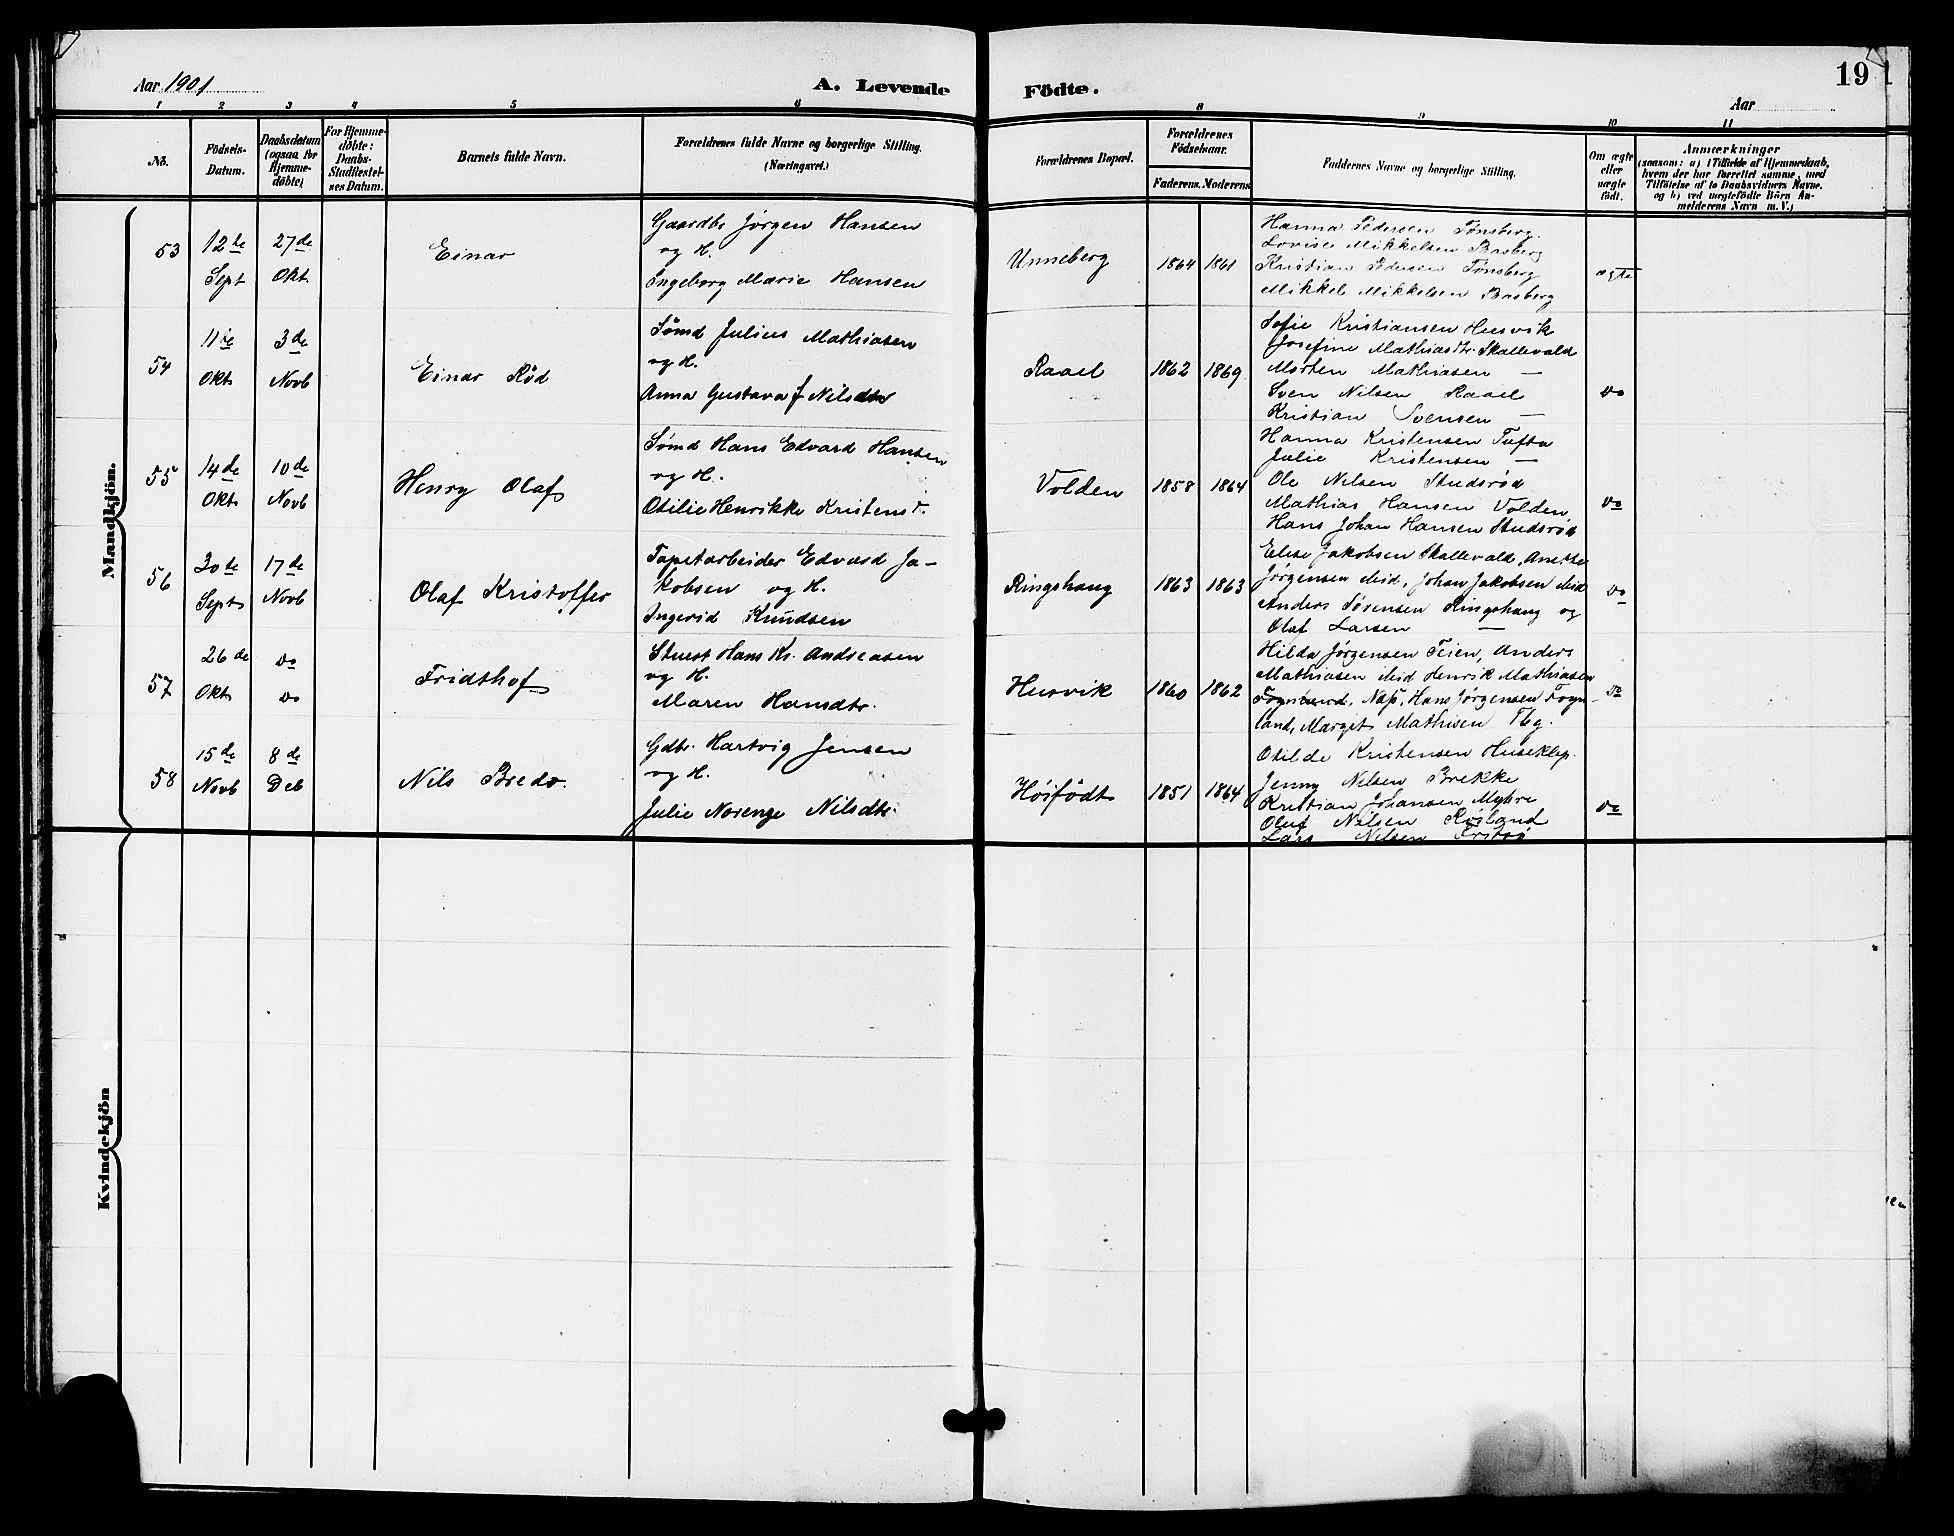 Aar 1901
A. Levende Födte.
19
Aar
1 2 3 4 5 6 8 9 10 11
No.
Födsels-Datum.
Daabsdatum (ogsaa for Hjemmedöbte)
For Hjemmedöbte: Daabs-Stadfæstelses Datum.
Barnets fulde Navn.
Forældrenes fulde Navne og borgerlige Stilling.
(Næringsvei.)
Forældrenes Bopæl.
Forældrenes Födselsaar.
Faderens. Moderens
Faddernes Navne og borgerlige Stilling.
Om ægte eller uægte födt.
Anmærkninger
(saasom: a) i Tilfælde af Hjemmedaab,
hvem der har forrettet samme, med
Tilföielse af to Daabsvidners Navne.
og b) ved uægtefödte Börn An-
melderens Navn m. V.)
Mandkjön.
53
12te Sept
27de Okt
Einar
Gaardbr Jørgen Hansen
og H.
Ingeborg Marie Hansen
Unneberg
1864 1861
Hanna Pedersen Tønsberg.
Lovise Mikkelsen Basberg
Kristian Pedersen Tønsberg
Mikkel Mikkelsen Basberg
ægte
54
11te Okt
3de Novb
Einar Röd
Sömd Julius Mathiasen
og H.
Anna Gustava f Nilsdtr
Raael
1862 1869
Sofie Kristiansen Husvik
Josefine Mathiasdtr. Skallevald
Morten Mathiasen —
Sven Nilsen Raael
Kristian Svensen —
do
55
14de Okt
10de Novb
Henry Olaf
Sømd Hans Edvard Hansen
og H.
Otilie Henrikke Kristensd.
Volden
1858 1864
Hanna Kristensen Tufta
Julie Kristensen —
Ole Nilsen Studsrød
Mathias Hansen Volden
Hans Johan Hansen Studsrød
do
56
30te Sept
17de Novb
Olaf Kristoffer
Tapetarbeider Edvard Ja-
kobsen og H.
Ingerid Knudsen
Ringshaug
1863 1863
Elise Jakobsen Skallevald, Anette
Jørgensen Meid, Johan Jakobsen Meid
Anders Sørensen Ringshaug og
Olaf Larsen —
do
57
26de Okt
do do
Fridthof
Stuert Hans Kr. Andreasen
og H.
Maren Hansdtr.
Husvik
1860 1862
Hilda Jørgensen Teien, Anders
Mathiasen Meid Henrik Mathiasen
Nøs, Hans Jørgensen Fogn-
land, Marget Mathisen Tbg.
do
58
15de Novb
8de Deb
Nils Bredo.
Gdbr. Hartvig Jensen
og H.
Julie Norenge Nilsdtr.
Höifödt
1851 1864
Otilde Kristensen Huseklep.
Jenny Nilsen Brekke
Kristian Johansen Myhre
Oluf Nilsen Röiland
Lars Nilsen
do
Kvindekjön